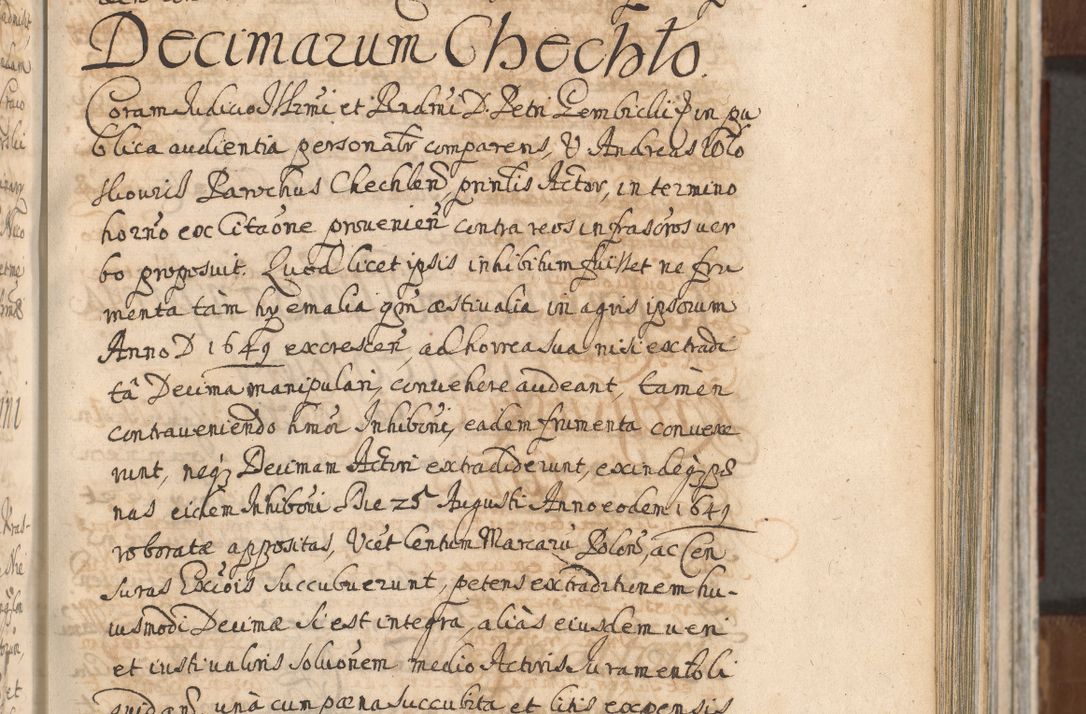 Decimarum Chechło.
Coram Judicio Illrmi et Rndmi D. Petri Gembicki Ep in pu
blica audientia personalr comparens, V Andreas Wolo
skowis Parochus Chechlen, printis Actor, in termino
horno ex Citaone provenien contra reos infrascros ver
bo proposuit. Quod licet ipsis inhibitum fuisset ne fru
menta tam hyemalia qm æstivalia in agris ipsorum
Anno D 1649 excrescen, ad horrea sua nisi extradi
tâ Decima manipulari, convehere audeant, tamen
contraveniendo hmoi Inhiboni, eadem frumenta convexe
runt, neq Decimam Actori extradiderunt, exindeq pæ
nas eidem Inhiboni Die 25 Augusti Anno eodem 1649
roboratæ appositas, Vcet Centum Marcaru Polon, ac Cen
suras Exciois succubuerunt, petens extraditionem hu-
iusmodi Decimæ si est integra, aliàs eiusdem veri
et iusti valoris soluonem medio Actoris Juramento li
quidan, unà cum pæna succubita et litis expensis